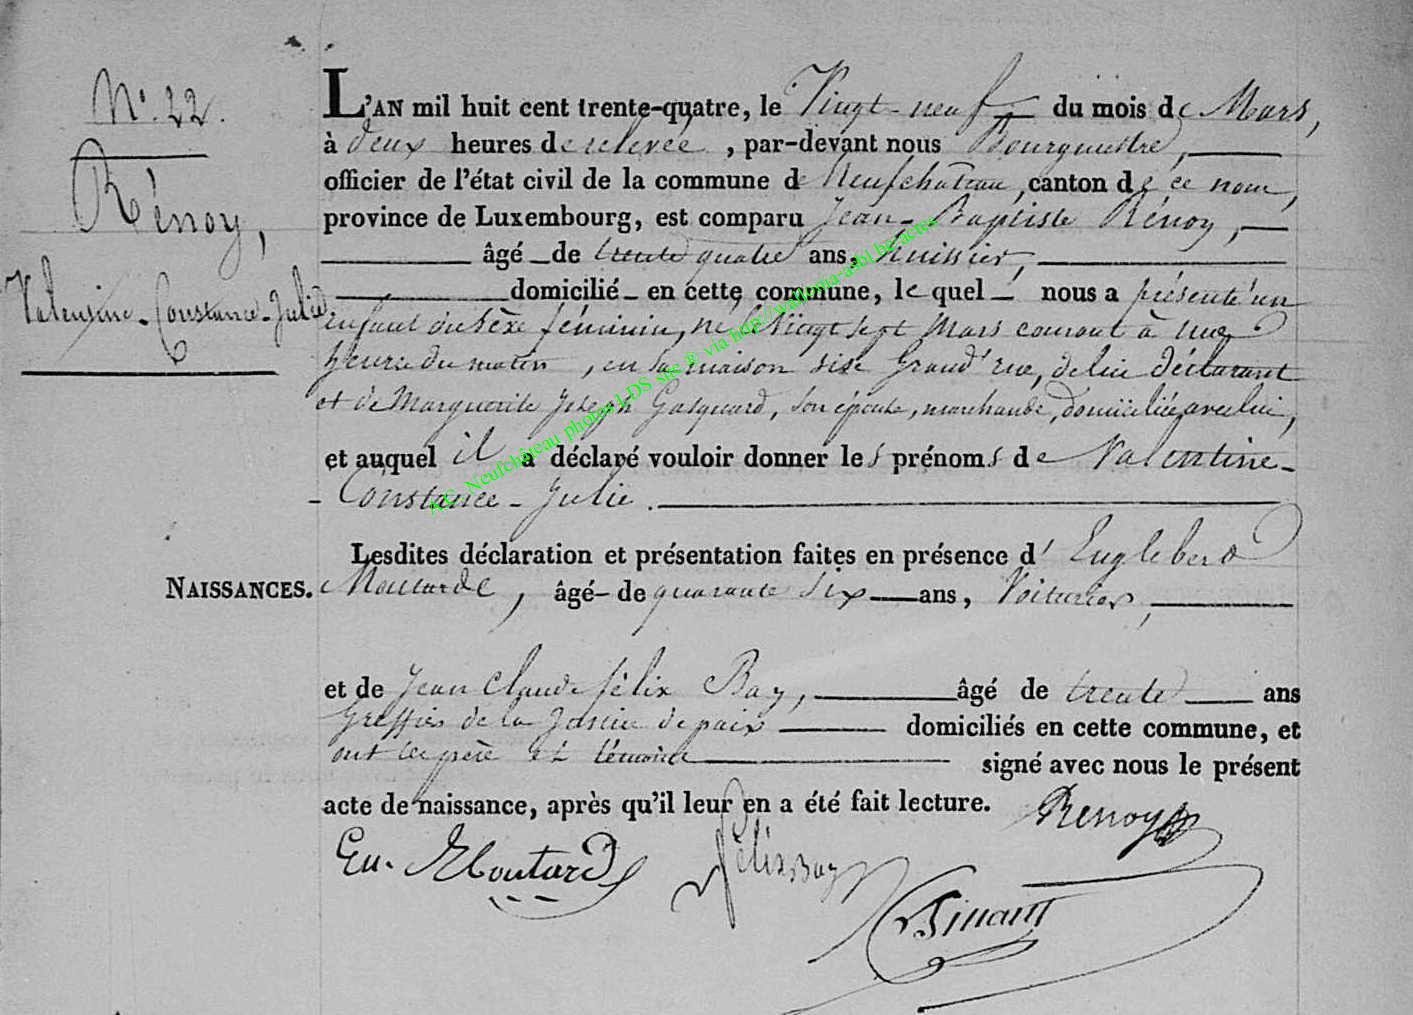 N.° 22.
Rénoy,
Valensine-Constance-Julie
L'AN mil huit cent trente-quatre, le Vingt-neuf du mois de Mars,
à deux heures de relevée, par-devant nous Bourgmestre,
officier de l'état civil de la commune de Neufchateau, canton de ce nom,
province de Luxembourg, est comparu Jean-Baptiste Rénoy,
âgé de trente quatre ans, huissier,
domicilié en cette commune, lequel nous a présenté un
enfant du sèxe féminin, né le Vingt sept Mars courant à une
heure du matin, en sa maison sise Grand'rue, de lui déclarant
et de Marguerite Joseph Gasquard, son épouse, marchande, domiciliée avec lui,
et auquel il a déclaré vouloir donner les prénoms de Valentine-
-Constance-Julie.
Lesdites déclaration et présentation faites en présence d'Englebert
NAISSANCES.
Moutarde, âgé de quarante six ans, Voiturier,
et de Jean Claude félix Bay, âgé de trente ans
Greffier de la Justice de paix domiciliés en cette commune, et
ont les père et témoins signé avec nous le présent
acte de naissance, après qu'il leur en a été fait lecture.
Renoy
En. Moutard
félix Bay
A.C. Neufchâteau photos LDS site ® via http://wallonia-asbl.be/actes